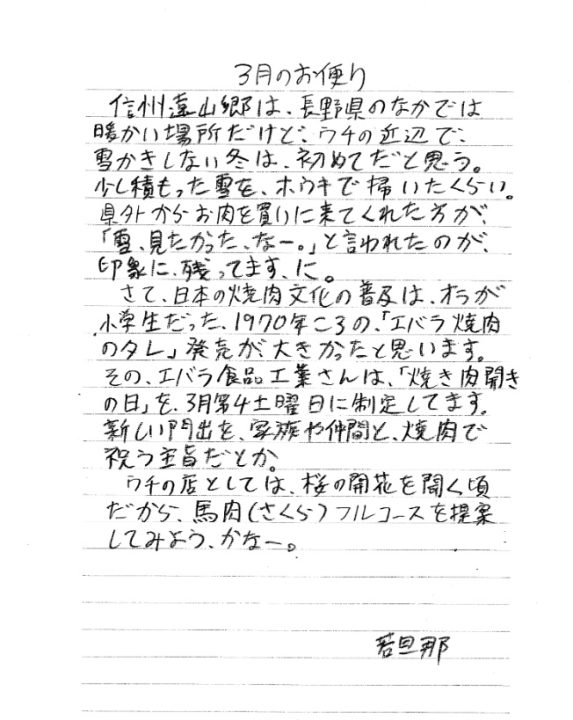 3月のお便り
信州遠山郷は、長野県のなかでは
暖かい場所だけど、ウチの近辺で、
雪かきしない冬は、初めてだと思う。
少し積もった雪を、ホウキで掃いたくらい。
県外からお肉を買いに来てくれた方が、
「雪、見たかった、なー。」と言われたのが、
印象に、残ってます、に。
さて、日本の焼肉文化の普及は、オラが
小学生だった、1970年ころの、「エバラ焼肉
のタレ」発売が大きかったと思います。
その、エバラ食品工業さんは、「焼き肉開き
の日」を、3月第4土曜日に制定してます。
新しい門出を、家族や仲間と、焼肉で
祝う主旨だとか。
ウチの店としては、桜の開花を聞く頃
だから、馬肉(さくら)フルコースを提案
してみよう、かなー。
若旦那